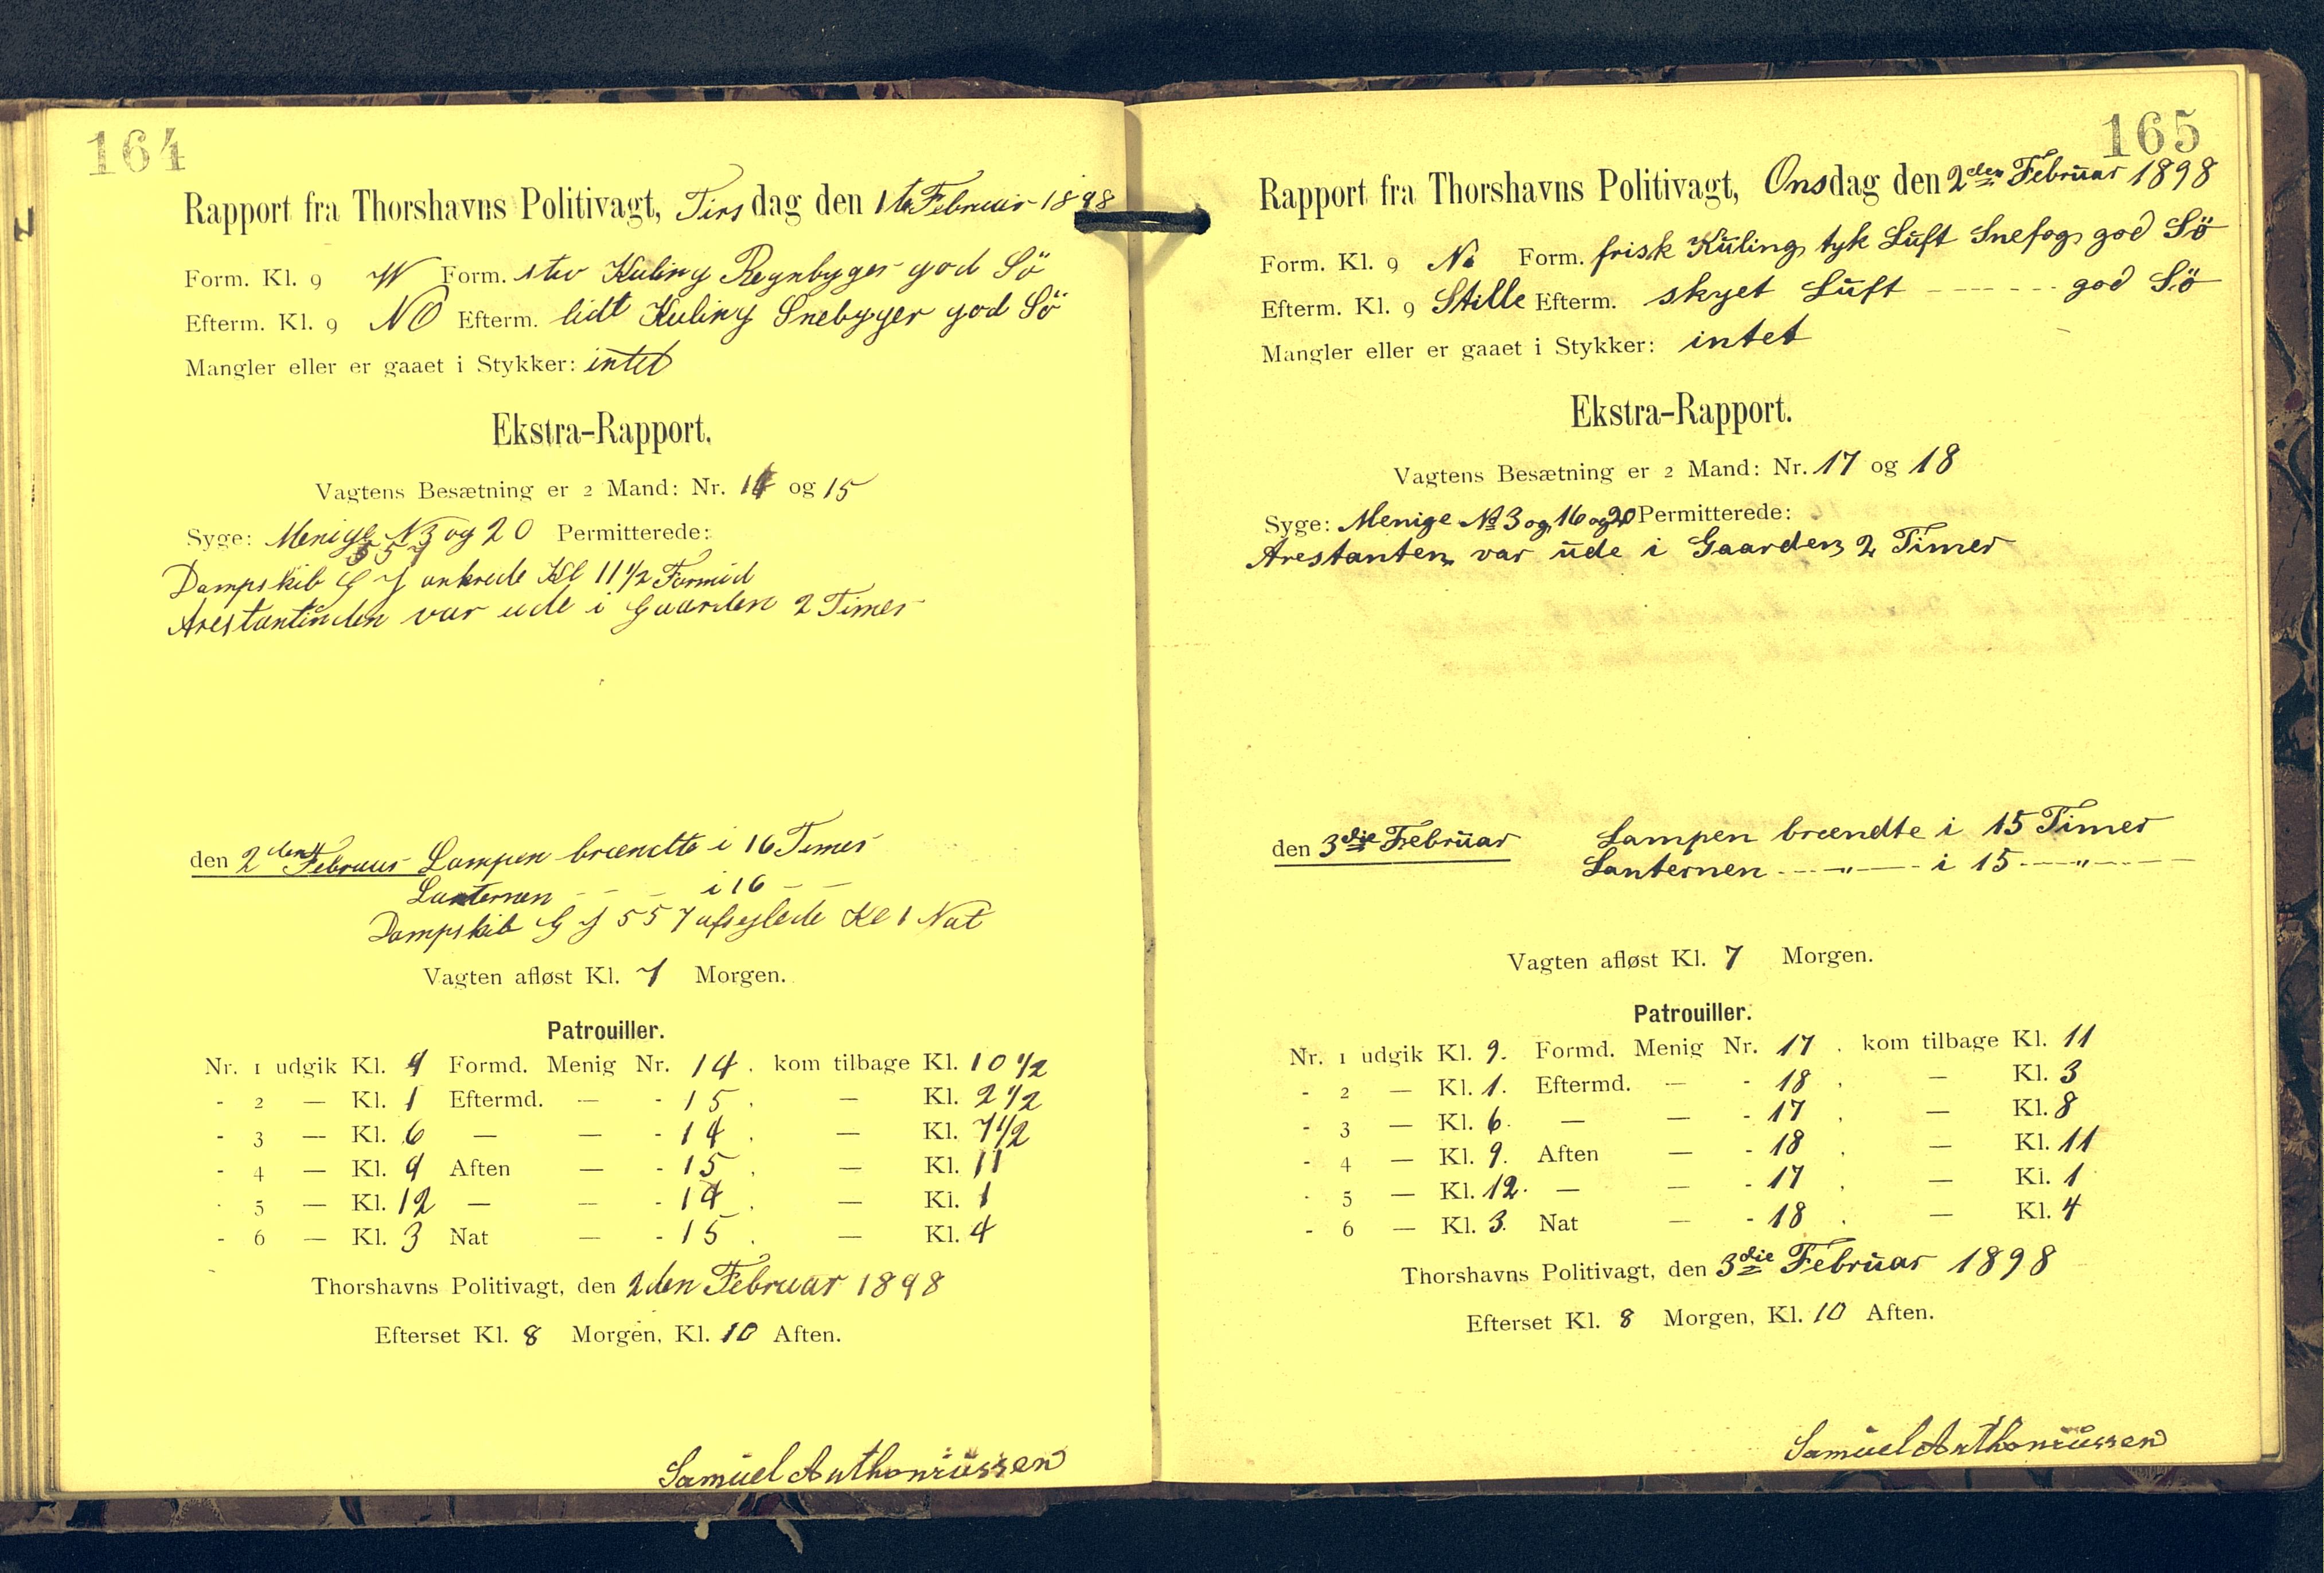 164
Rapport fra Thorshavns Politivagt, Tirsdag den 1te Februar 1898
Form. Kl. 9 W Form. stiv Kuling Regnbyger god Sö
Efterm. Kl. 9 NO Efterm. lidt Kuling Snebyger god Sö
Mangler eller er gaaet i Stykker: intet
Ekstra-Rapport.
Vagtens Besætning er 2 Mand: Nr. 14 og 15
Syge: Menige N 3 og 20 Permitterede:
557
Dampskib G J ankrede Kl 11 1/2 Formid
Arestantinden var ude i Gaarden 2 Timer
den 2den Februar Lampen brændte i 16 Timer
Lanternen - - - i 16 - -
Dampskib G J 557 afseglede Kl 1 Nat
Vagten afløst Kl. 7 Morgen.
Patrouiller.
Nr. 1 udgik Kl. 9 Formd. Menig Nr. 14. kom tilbage Kl. 10 1/2
- 2 — Kl. 1 Eftermd. — - 15. — Kl. 2 1/2
- 3 — Kl. 6 — — - 14. — Kl. 7 1/2
- 4 — Kl. 9 Aften — - 15. — Kl. 11
- 5 — Kl. 12 — — - 14. — Kl. 1
- 6 — Kl. 3 Nat — - 15. — Kl. 4
Thorshavns Politivagt, den 2den Februar 1898
Efterset Kl. 8 Morgen, Kl. 10 Aften.
Samuel Anthoniussen
165
Rapport fra Thorshavns Politivagt, Onsdag den 2den Februar 1898
Form. Kl. 9 No Form. frisk Kuling tyk Luft Snefog god Sö
Efterm. Kl. 9 Stille Efterm. skyet Luft - - - - - - god Sö
Mangler eller er gaaet i Stykker: intet
Ekstra-Rapport.
Vagtens Besætning er 2 Mand: Nr. 17 og 18
Syge: Menige No 3 og 16 og 20 Permitterede:
Arestanten var ude i Gaarden 2 Timer
den 3die Februar Lampen brændte i 15 Timer
Lanternen - - - „ - — - i 15 - — - „ - - -
Vagten afløst Kl. 7 Morgen.
Patrouiller.
Nr. 1 udgik Kl. 9. Formd. Menig Nr. 17. kom tilbage Kl. 11
- 2 — Kl. 1. Eftermd. — - 18. — Kl. 3
- 3 — Kl. 6. — — - 17. — Kl. 8
- 4 — Kl. 9. Aften — - 18. — Kl. 11
- 5 — Kl. 12. — — - 17. — Kl. 1
- 6 — Kl. 3. Nat — - 18. — Kl. 4
Thorshavns Politivagt, den 3die Februar 1898
Efterset Kl. 8 Morgen, Kl. 10 Aften.
Samuel Anthoniussen